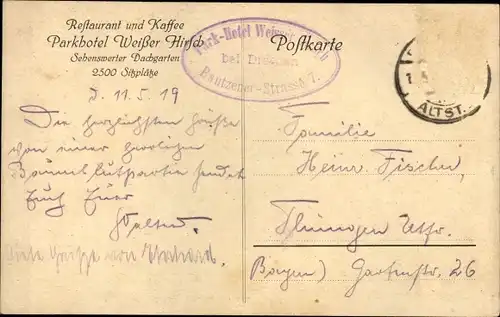 Restaurant und Kaffee
Parkhotel Weißer Hirsch
Sehenswerter Dachgarten
2500 Sitzplätze
Park-Hotel Weisser
bei Dresden
Bautzener-Strasse 7.
Postkarte
ALTST.
D. 11.5.19
Die herzlichsten Grüße
von einer herrlichen
Baumblutpartie sendet
Euch Euer
Walter.
Viele Grüße von
Familie
Heinr. Fischer,
Bayern) Gartenstr. 26